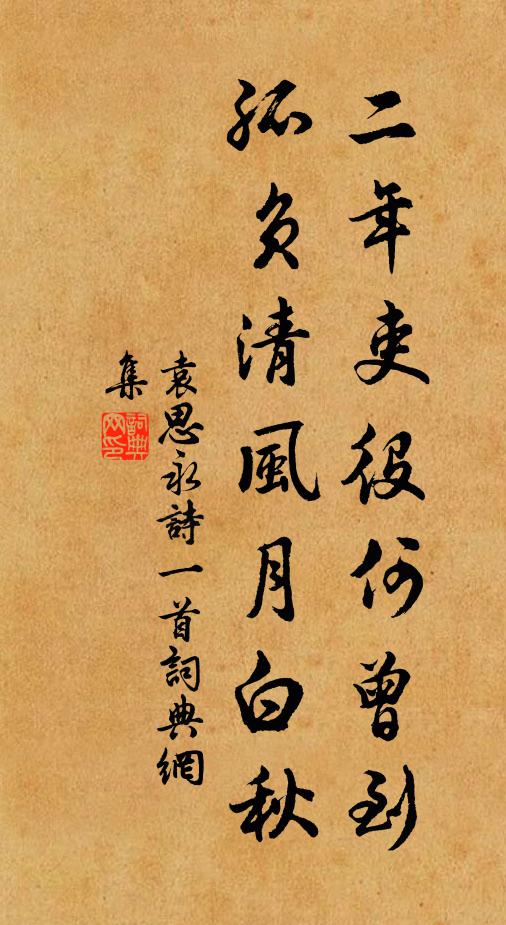 二年吏役何曾到
孤負清風月白秋
袁思永詩一首詞典網
集
詞典网印